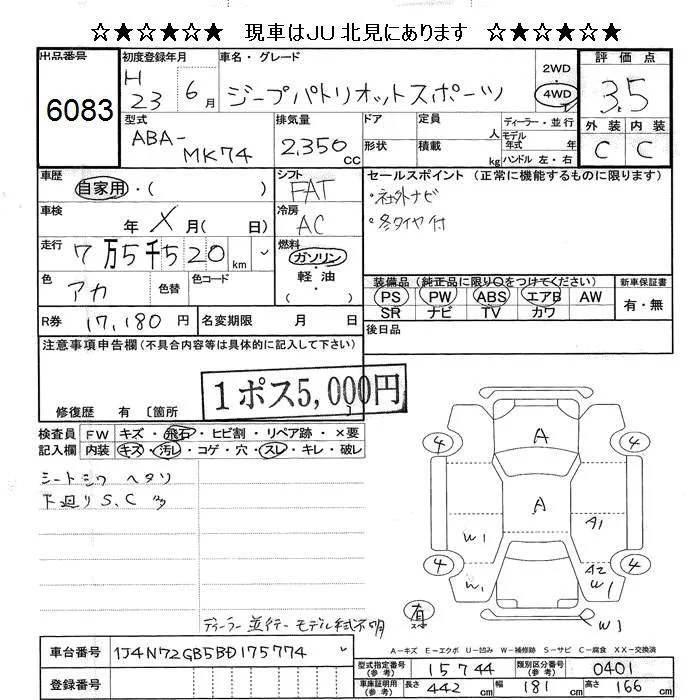 ☆★☆★☆★ 現車はJU北見にあります ☆★☆★☆★
出品番号 6083
初度登録年月 H 23 6月
車名・グレード ジープパトリオットスポーツ
2WD 4WD
評価点 3.5
外装 内装
C C
型式 ABA-MK74
排気量 2,350 cc
ドア 定員 人
形状 積載 kg
ディーラー・並行
モデル年式 年
ハンドル 左・右
車歴 自家用・( )
シフト FAT
セールスポイント (正常に機能するものに限ります)
・社外ナビ
・冬タイヤ付
車検 年 X 月( 日)
冷房 AC
走行 7万5千520 km
燃料 ガソリン・軽油 ( )
色 アカ 色替 色コード
装備品(純正品に限り○をつけてください)
PS PW ABS エアB AW
SR ナビ TV カワ
新車保証書 有・無
R券 17,180 円 名変期限 月 日
後日品
注意事項申告欄(不具合内容等は具体的に記入して下さい)
1ポス5,000円
修復歴 有 〔箇所
検査員記入欄
FW キズ・飛石・ヒビ割・リペア跡・×要
内装 キズ・汚レ・コゲ・穴・スレ・キレ・破レ
シートシワ ヘタリ
下廻りS、C
4 A 4
A
W1 A1
4 4
W1 A2 W1
有 W3
ディーラー並行モデル年式不明
A-キズ E-エクボ U-凹み W-補修跡 S-サビ C-腐食 XX-交換済
車台番号 1J4N72GB5BD175774
登録番号
型式指定番号(参考) 15744 類別区分番号(参考) 0401
車庫証明用(参考) 長さ 442 cm 幅 181 cm 高さ 166 cm